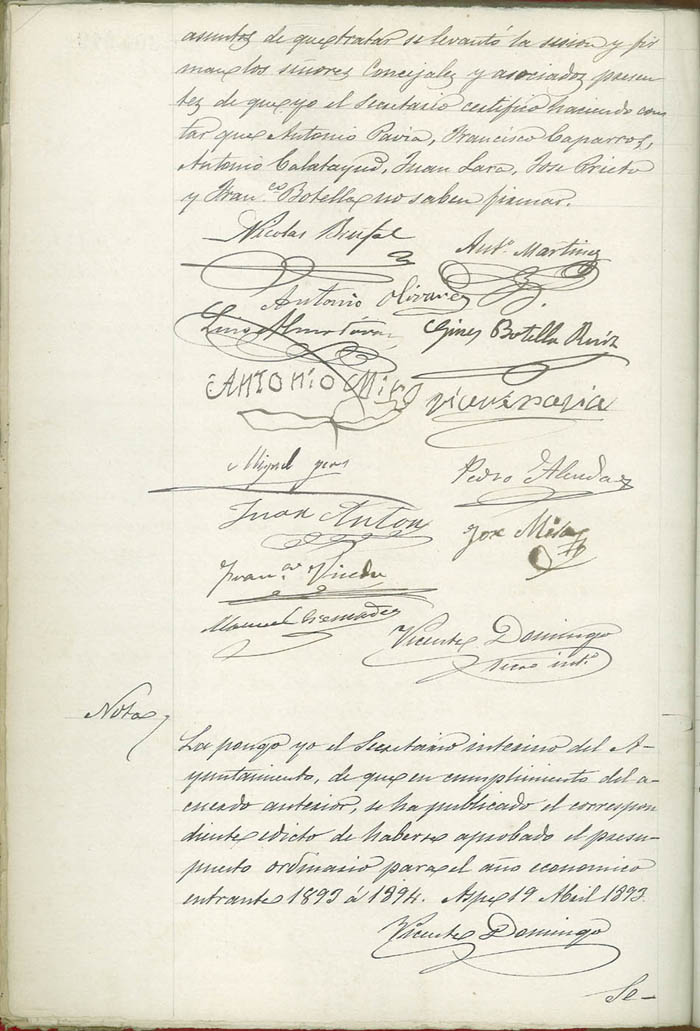 asuntos de que tratar se levantó la sesion y fir
man los señores Concejales y asociados presen
tes de que yo el Secretario certifico haciendo cons
tar, que Antonio Pavia, Francisco Caparros,
Antonio Calatayud, Juan Lara, Jose Prieto
y Fran.co Botella no saben firmar.
Nicolas
Ant.o Martinez
Antonio Olivares
Luis Almodóvar
Gines Botella Ruiz
ANTONIO Miró
Vicente Pavia
Miguel
Pedro
Juan Anton
Jose Mira
Fran.co
Manuel
Vicente Domingo
Srio int.o
Nota
La pongo yo el Secretario interino del A-
yuntamiento, de que en cumplimiento del a-
cuerdo anterior, se ha publicado el correspon
diente edicto de haberse aprobado el presu-
puesto ordinario para el año economico
entrante 1893 á 1894. Aspe 19 Abril 1893.
Vicente Domingo
Se-